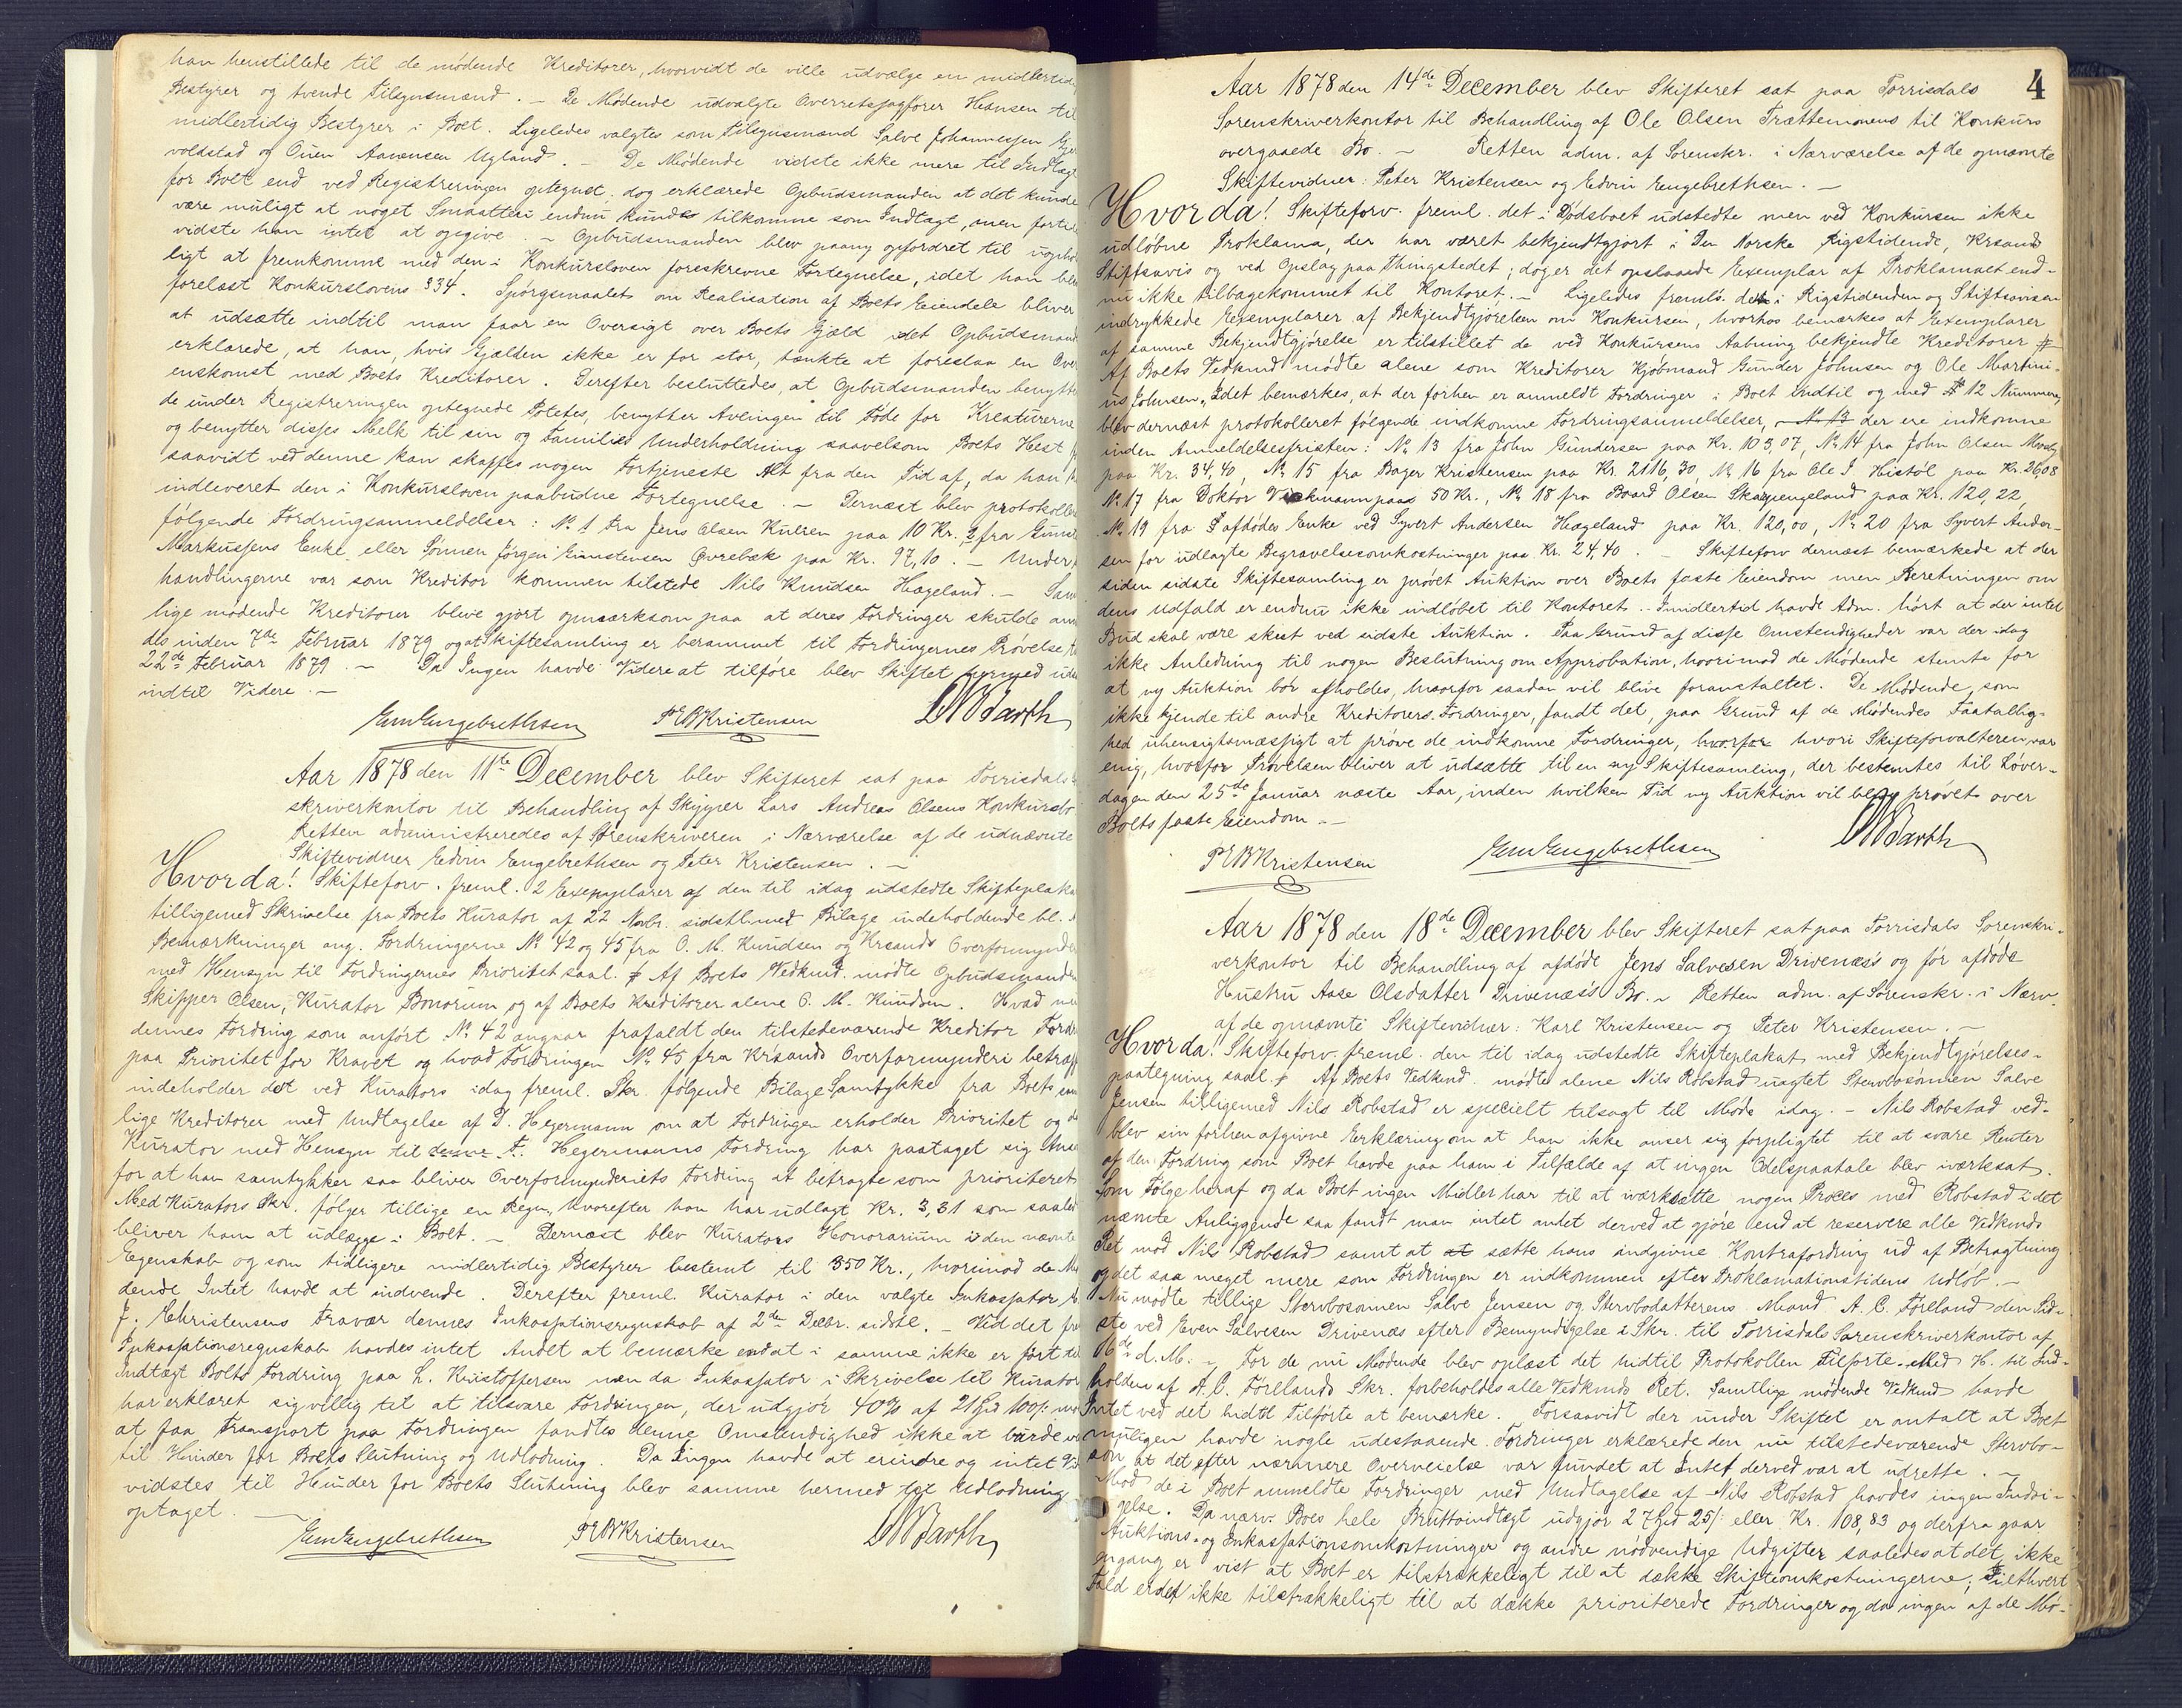 han henstillede til de mødende Kreditorer, hvorvidt de ville udvælge en midlertidi
Bestyrer og tvende Tilsynsmænd. – De Mødende udvalgte Overretssagfører Hansen til
midlertidig Bestyrer i Boet. Ligeledes valgtes som Tilsynsmænd Salve Johannessen
voldstad og Ouen Aanensen Ugland. – De Mødende vidste ikke mere til Indtægt
for Boet end ved Registreringen optegnet, dog erklærede Opbudsmanden at det kunde
være muligt at noget Smaatteri endnu kunde tilkomme som Indtægt, men fortid
vidste han intet at opgive. – Opbudsmanden blev paany opfordret til uophol
ligt at fremkomme med den i Konkursloven foreskrevne Fortegnelse, idet han blev
forelæst Konkurslovens §34. Spørgsmaalet om Realisation af Boets Eiendele bliver
at udsætte indtil man faar en Oversigt over Boets Gjæld idet Opbudsmand
erklærede, at han, hvis Gjælden ikke er for stor, tænkte at foreslaa en Over
enskomst med Boets Kreditorer. Derefter besluttedes, at Opbudsmanden benytte
de under Registreringen optegnede Potetes, benytter Avlingen til Føde for Kreaturerne
og benytter disses Melk til sin og Families Underholdning saavelsom Boets Hest
saavidt ved denne kan skaffes nogen Fortjeneste Alt fra den Tid af, da han
indleveret den i Konkursloven paabudne Fortegnelse. – Dernæst blev protokolle
følgende Fordringsanmeldelser: No 1 fra Jens Olsen Kulien paa 10 Kr. 2 fra Gun
Markussens Enke eller Sønnen Jørgen Gunstensen Øvrebøk paa Kr. 97,10. – Under
handlingerne var som Kreditor kommen tilstede Nils Knudsen Hægeland. – Sam
lige mødende Kreditorer bleve gjort opmærksom paa at deres Fordringer skulde an
des inden 7de Februar 1879 og at Skiftesamling er berammet til Fordringernes Prøvelse
22de Februar 1879. – Da Ingen havde Videre at tilføre blev Skiftet hermed uds
indtil Videre. –
Em Engebrethsen P E B Kristensen Barth
Aar 1878 den 11te December blev Skifteret sat paa Torrisdals
skriverkontor til Behandling af Skipper Lars Andreas Olsens Konkursbo
Retten administreredes af Sorenskriveren i Nærværelse af de udnævnte
Skiftevidner Edvin Engebrethsen og Peter Kristensen. –
Hvorda! Skifteforv. freml. 2 Exemplarer af den til idag udstedte Skifteplaka
tilligemed Skrivelse fra Boets Kurator af 22 Novbr. sidstl. med Bilage indeholdende bl.
Bemærkninger ang. Fordringerne No 42 og 45 fra O. M. Knudsen og Krsands Overformynde
med Hensyn til Fordringernes Prioritet saal. # Af Boets Vedkmd. mødte Opbudsmanden
Skipper Olsen, Kurator Bonorum og af Boets Kreditorer alene O. M. Knudsen. Hvad nu
dennes Fordring som anført No 42 angaar frafaldt den tilstedeværende Kreditor Fordr
paa Prioritet for Kravet og hvad Fordringen No 45 fra Krsands Overformynderi betræff
indeholder det ved Kurators idag freml. Skr. følgende Bilage Samtykke fra Boets sam
lige Kreditorer med Undtagelse af D. Hegermann om at Fordringen erholder Prioritet og
Kurator med Hensyn til Hegermanns Fordring har paataget sig Ans
for at han samtykker saa bliver Overformynderiets Fordring at betragte som prioriteret
Med Kurators Skr. følger tillige en Regn. hvorefter han har udlagt Kr. 3,31 som saaled
bliver ham at udlægge i Boet. – Dernæst blev Kurators Honorarium i den nævnte
Egenskab og som tidligere midlertidig Bestyrer bestemt til 350 Kr., hvorimod de Mø
dende Intet havde at indvende. Derefter freml. Kurator i den valgte Inkassator
J. Christensens Fravær dennes Inkassationsregnskab af 2den Decbr. sidstl. – Ved det fr
Inkassationsregnskab havdes intet Andet at bemærke end at i samme ikke er ført til
Indtægt Boets Fordring paa L. Kristoffersen men da Inkassator i Skrivelse til Kurator
har erklæret sig villig til at tilsvare Fordringen, der udgjør 40% af 21 Spd 100/: mod
at faa Transport paa Fordringen fandtes denne Omstendighed ikke at burde vær
til Hinder for Boets Slutning og Udlodning. Da Ingen havde at erindre og intet Vid
vidstes til Hinder for Boets Slutning blev samme hermed til Udlodning
optaget. –
Em Engebrethsen P E B Kristensen Barth
4
Aar 1878 den 14de December blev Skifteret sat paa Torrisdals
Sorenskriverkontor til Behandling af Ole Olsen Trættemoens til Konkurs
overgaaede Bo. – Retten adm. af Sorenskr. i Nærværelse af de opnævnte
Skiftevidner: Peter Kristensen og Edvin Engebrethsen. –
Hvorda! Skifteforv. freml. det i Dødsboet udstedte men ved Konkursen ikke
udløbne Proklama, der har været bekjendtgjort i Den Norske Rigstidende, Krsands
Stiftsavis og ved Opslag paa Thingstedet; dog er det opslaaede Exemplar af Proklamaet end-
nu ikke tilbagekommet til Kontoret. – Ligeledes fremls. de i Rigstidenden og Stiftsavisen
indrykkede Exemplarer af Bekjendtgjørelsen om Konkursen, hvorhos bemærkes at Exemplarer
af samme Bekjendtgjørelse er tilstillet de ved Konkursens Aabning bekjendte Kreditorer #
Af Boets Vedkmd mødte alene som Kreditorer Kjøbmand Gunder Johnsen og Ole Martini-
us Johnsen. Idet bemærkes, at der forhen er anmeldt Fordringer i Boet indtil og med 12 Nummere,
blev dernæst protokolleret følgende indkomne Fordringsanmeldelser, der ere indkomne
inden Anmeldelsesfristen: No 13 fra John Gundersen paa Kr. 103,07, No 14 fra John Olsen
paa Kr. 34,40, No 15 fra Bager Kristensen paa Kr. 2116,30, No 16 fra Ole J. Histøl paa Kr. 26,08
No 17 fra Doktor paa 50 Kr., No 18 fra Baard Olsen Skarpengeland paa Kr. 120,22,
No 19 fra afdødes Enke ved Syvert Andersen Hægeland paa Kr. 120,00, No 20 fra Syvert Ander-
sen for udlagte Begravelsesomkostninger paa Kr. 24,40. – Skifteforv dernæst bemærkede at der
siden sidste Skiftesamling er prøvet Auktion over Boets faste Eiendom men Beretningen om
dens Udfald er endnu ikke indløbet til Kontoret. – Imidlertid havde Adm. hørt at der intet
Bud skal være skeet ved sidste Auktion. Paa Grund af disse Omstendigheder var der idag
ikke Anledning til nogen Beslutning om Approbation, hvorimod de Mødende stemte for
at ny Auktion bør afholdes, hvorfor saadan vil blive foranstaltet. De Mødende, som
ikke kjende til andre Kreditorers Fordringer, fandt det, paa Grund af de Mødendes Faatallig-
hed uhensigtsmæssigt at prøve de indkomne Fordringer, hvorfor hvori Skifteforvalteren var
enig, hvorfor Prøvelsen bliver at udsætte til en ny Skiftesamling, der bestemtes til Løver-
dagen den 25de Januar næste Aar, inden hvilken Tid ny Auktion vil blive prøvet over
Boets faste Eiendom. –
P E B Kristensen Em Engebrethsen Barth
Aar 1878 den 18de December blev Skifteret sat paa Torrisdals Sorenskri-
verkontor til Behandling af afdøde Jens Salvesen Drivenæs's og før afdøde
Hustru Aase Olsdatter Drivenæs's Bo. – Retten adm. af Sorenskr. i Nærv.
af de opnævnte Skiftevidner: Karl Kristensen og Peter Kristensen. –
Hvorda! Skifteforv. freml. den til idag udstedte Skifteplakat med Bekjendtgjørelses-
paategning saal. # Af Boets Vedkmd mødte alene Nils Robstad uagtet Stervbosønnen Salve
Jensen tilligemed Nils Robstad er specielt tilsagt til Møde idag. – Nils Robstad ved-
blev sin forhen afgivne Erklæring om at han ikke anser sig forpligtet til at svare Renter
af den Fordring som Boet havde paa ham i Tilfælde af at ingen Odelspaatale blev iværksat.
Som Følge heraf og da Boet ingen Midler har til at iværksætte nogen Proces med Robstad i det
nævnte Anliggende saa fandt man intet andet derved at gjøre end at reservere alle Vedkmds
Ret mod Nils Robstad samt at at sætte hans indgivne Kontrafordring ud af Betragtning
og det saa meget mere som Fordringen er indkommen efter Proklamationstidens Udløb. –
Nu mødte tillige Stervbosønnen Salve Jensen og Stervbodatterens Mand A. C. Føreland den Sid-
ste ved Even Salvesen Drivenæs efter Bemyndigelse i Skr. til Torrisdals Sorenskriverkontor af
16de d. M. – For de nu Mødende blev oplæst det hidtil Protokollen Tilførte. Med H. til Ind-
holden af A. C. Førelands Skr. forbeholdes alle Vedkmds Ret. Samtlige mødende Vedkmd havde
Intet ved det hidtil Tilførte at bemærke. Forsaavidt der under Skiftet er antalt at Boet
muligen havde nogle udestaaende Fordringer erklærede den nu tilstedeværende Stervbo-
søn at det efter nærmere Overveielse var fundet at Intet derved var at udrette. –
Mod de i Boet anmeldte Fordringer med Undtagelse af Nils Robstad havdes ingen Indsi-
gelse. Da nærv. Boes hele Bruttoindtægt udgjør 27 Spd 25/: eller Kr. 108,83 og derfra gaar
Auktions- og Inkassationsomkostninger og andre nødvendige Udgifter saaledes at det ikke
engang er vist at Boet er tilstrækkeligt til at dække Skifteomkostningerne; Ialthvert
Fald er det ikke tilstrækkeligt til at dække prioriterede Fordringer og da ingen af de Mø-